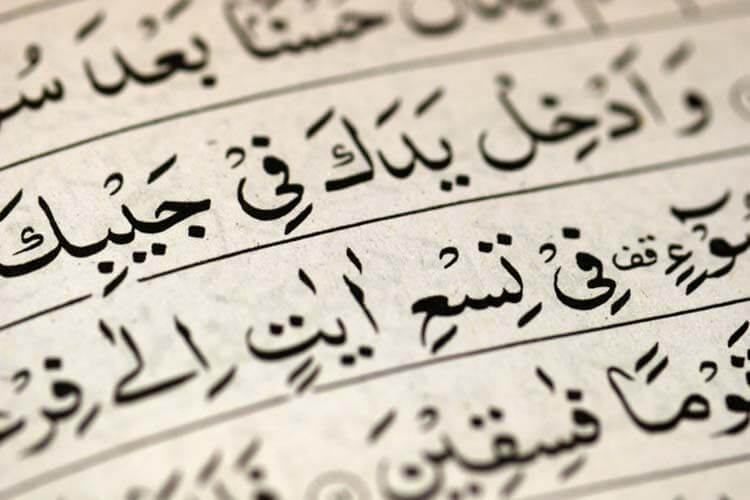 حُسْنًۢا بَعْدَ سُو
وَاَدْخِلْ يَدَكَ فِيْ جَيْبِكَ
سُوْٓءٍ قف فِيْ تِسْعِ اٰيٰتٍ اِلٰى فِرْعَ
قَوْمًا فٰسِقِيْنَ